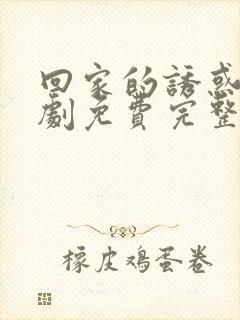 回家的誘惑
劇免費完整
橡皮鸡蛋卷